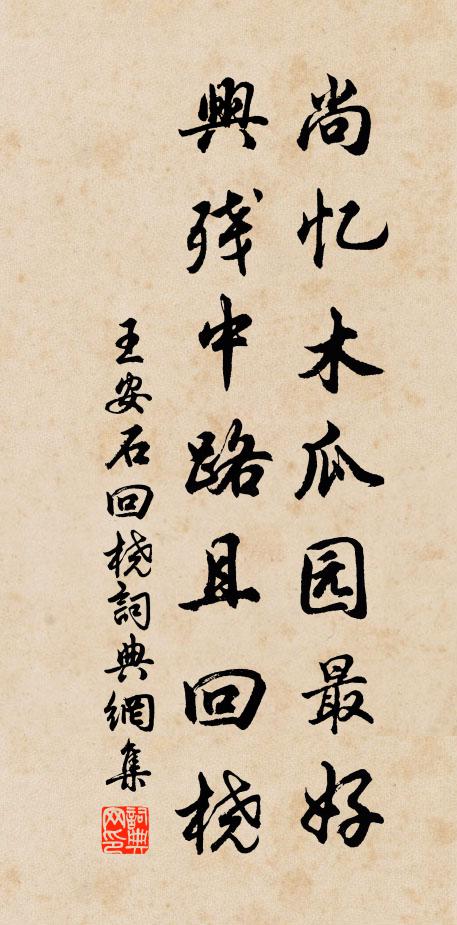 尚忆木瓜园最好
興残中路且回桡
王安石回桡詞典網集
詞典网印